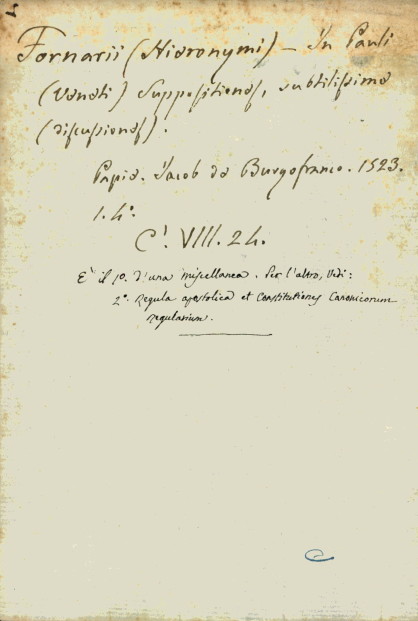 Fornarii (Hieronymi) - In Pauli
(Veneti) Suppositiones, subtilissime
(discussiones).
Papie. Jacob de Burgofranco. 1523.
1. 4°.
C¹. VIII. 24.
E' il 1º. d'una miscellanea. Per l'altro, vedi:
2º. Regula apostolica et Constitutiones Canonicorum
regularium.